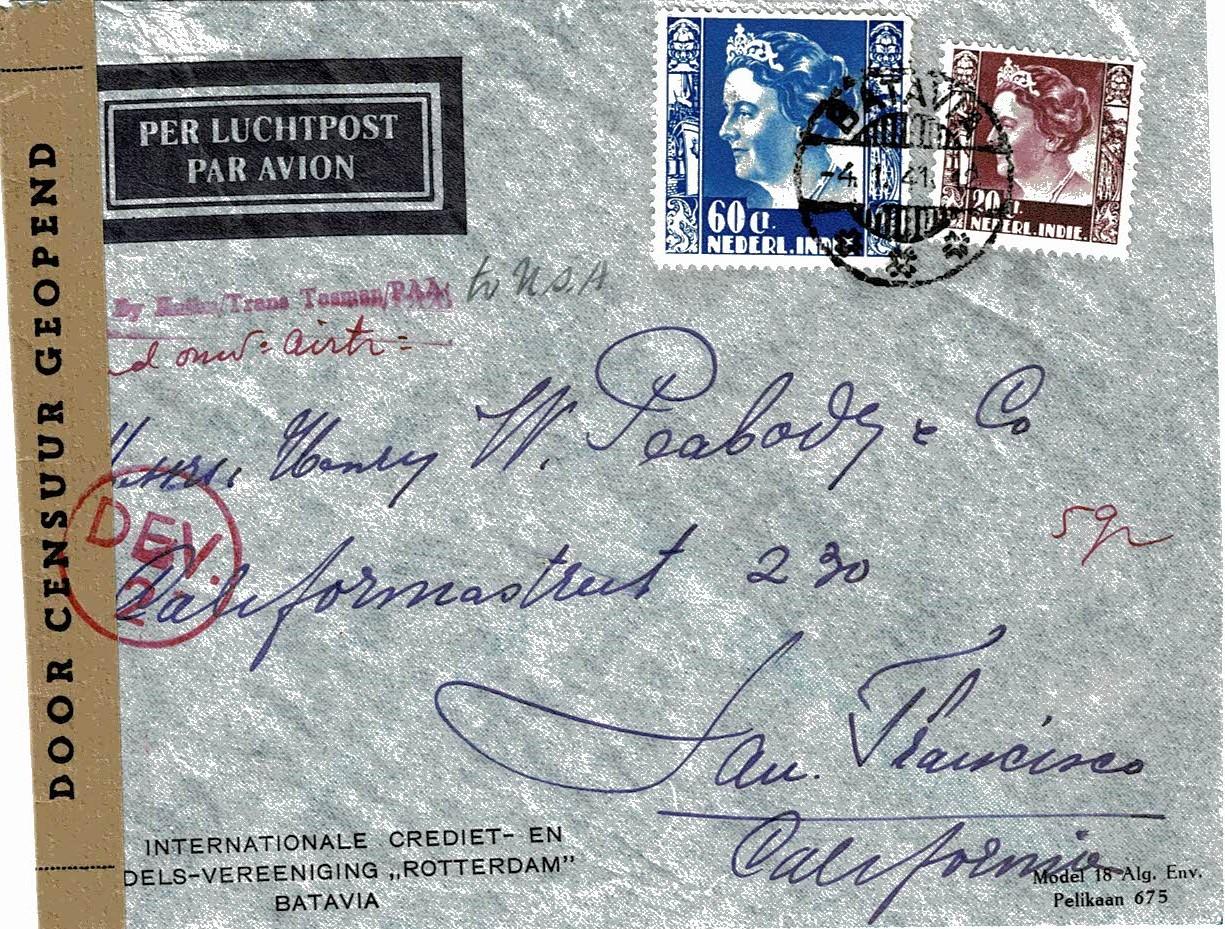 DOOR CENSUUR GEOPEND
PER LUCHTPOST
PAR AVION
60 ct.
NEDERL. INDIE
20 ct.
NEDERL. INDIE.
BATAVIA
-4. 1. 41.
By /Trans Tasman/PAA
to U.S.A.
onw = airtr =
Henry W. Peabody & Co
DEV.
2.
Californiastreet 230
5gr
San Francisco
California
INTERNATIONALE CREDIET- EN
DELS-VEREENIGING „ROTTERDAM"
BATAVIA
Model 18 Alg. Env.
Pelikaan 675